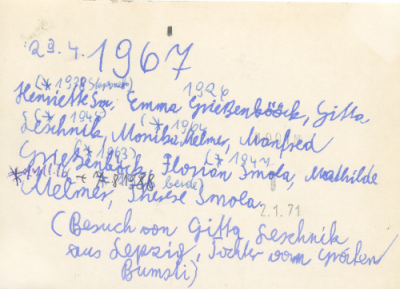 29.4.1967
(*1938 1926
Henriette Sm, Emma Grießenböck, Gitta
(*1941) (*1964
Leschnik, Monika Melmer, Manfred
(*1963) (*1941
Grießenböck, Florian Smola, Mathilde
beide)
Melmer, Therese Smola.
2.1.71
(Besuch von Gitta Leschnik
aus Leipzig, Tochter vom
Bumsti)